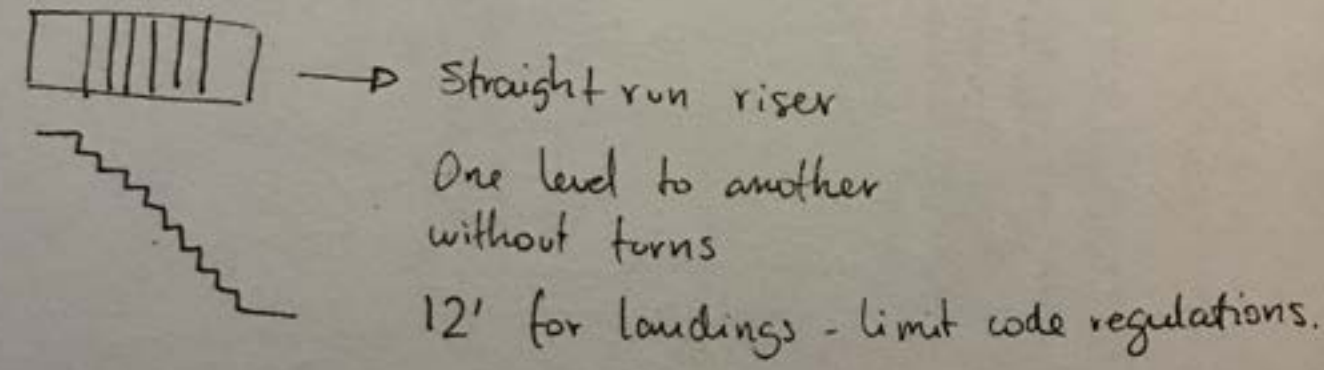 Straight run riser
One level to another
without turns
12' for landings - limit code regulations.